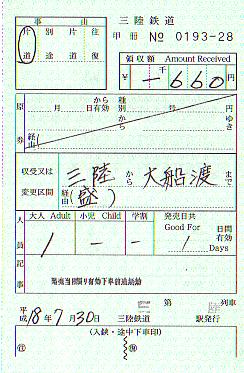 事由 三陸鉄道
片道 別途 片道 復 甲冊 № 0193-28
領収額 Amount Received
¥ 一千660円
原券 月 日から有効 種別 号 円
経由 から ゆき
収受又は変更区間 三陸から大船渡まで
経由(盛)
人員 大人 Adult 小児 Child 学割 発売日共 Good For 日間有効 Days
1 - - 1
記事 発売当日限り有効下車前途無効
平成18年7月30日 第 列車
三陸鉄道 駅発行
(入鋏・途中下車印)